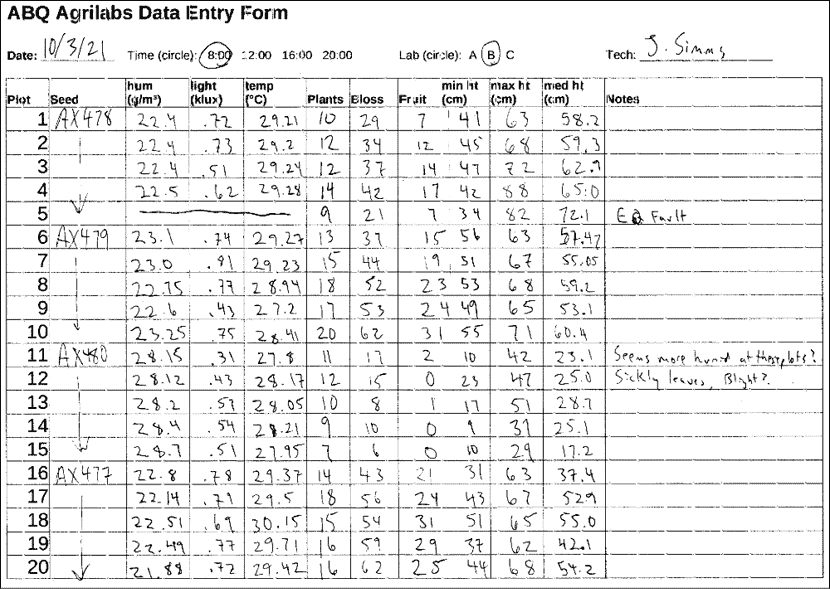 ABQ Agrilabs Data Entry Form
Date: 10/3/21 Time (circle): 8:00 12:00 16:00 20:00 Lab (circle): A B C Tech: J. Simms
Plot Seed hum (g/m³) light (klux) temp (°C) Plants Bloss Fruit min ht (cm) max ht (cm) med ht (cm) Notes
1 AX478 22.4 .72 29.21 10 29 7 41 63 58.2
2 22.4 .73 29.2 12 34 12 45 68 59.3
3 22.4 .51 29.24 12 37 14 47 72 62.9
4 22.5 .62 29.28 14 42 17 42 88 65.0
5 9 21 7 34 82 72.1 EQ Fault
6 AX479 23.1 .74 29.27 13 37 15 56 63 57.47
7 23.0 .81 29.23 15 44 19 51 67 55.05
8 22.75 .77 28.94 18 52 23 53 68 59.2
9 22.6 .43 27.2 17 53 24 49 65 53.1
10 23.25 .75 28.41 20 62 31 55 71 60.4
11 AX480 28.15 .31 27.8 11 17 2 10 42 23.1 Seems more humid at these plots?
12 28.12 .43 28.17 12 15 0 23 47 25.0 Sickly leaves, Blight?
13 28.2 .53 28.05 10 8 1 17 51 28.7
14 28.4 .54 28.21 9 10 0 9 37 25.1
15 28.7 .51 27.95 7 6 0 10 29 17.2
16 AX477 22.8 .78 29.37 14 43 21 31 63 37.4
17 22.14 .71 29.5 18 56 24 43 67 529
18 22.51 .69 30.15 15 54 31 51 65 55.0
19 22.49 .77 29.71 16 59 29 37 62 42.1
20 21.88 .72 29.42 16 62 25 44 68 54.2